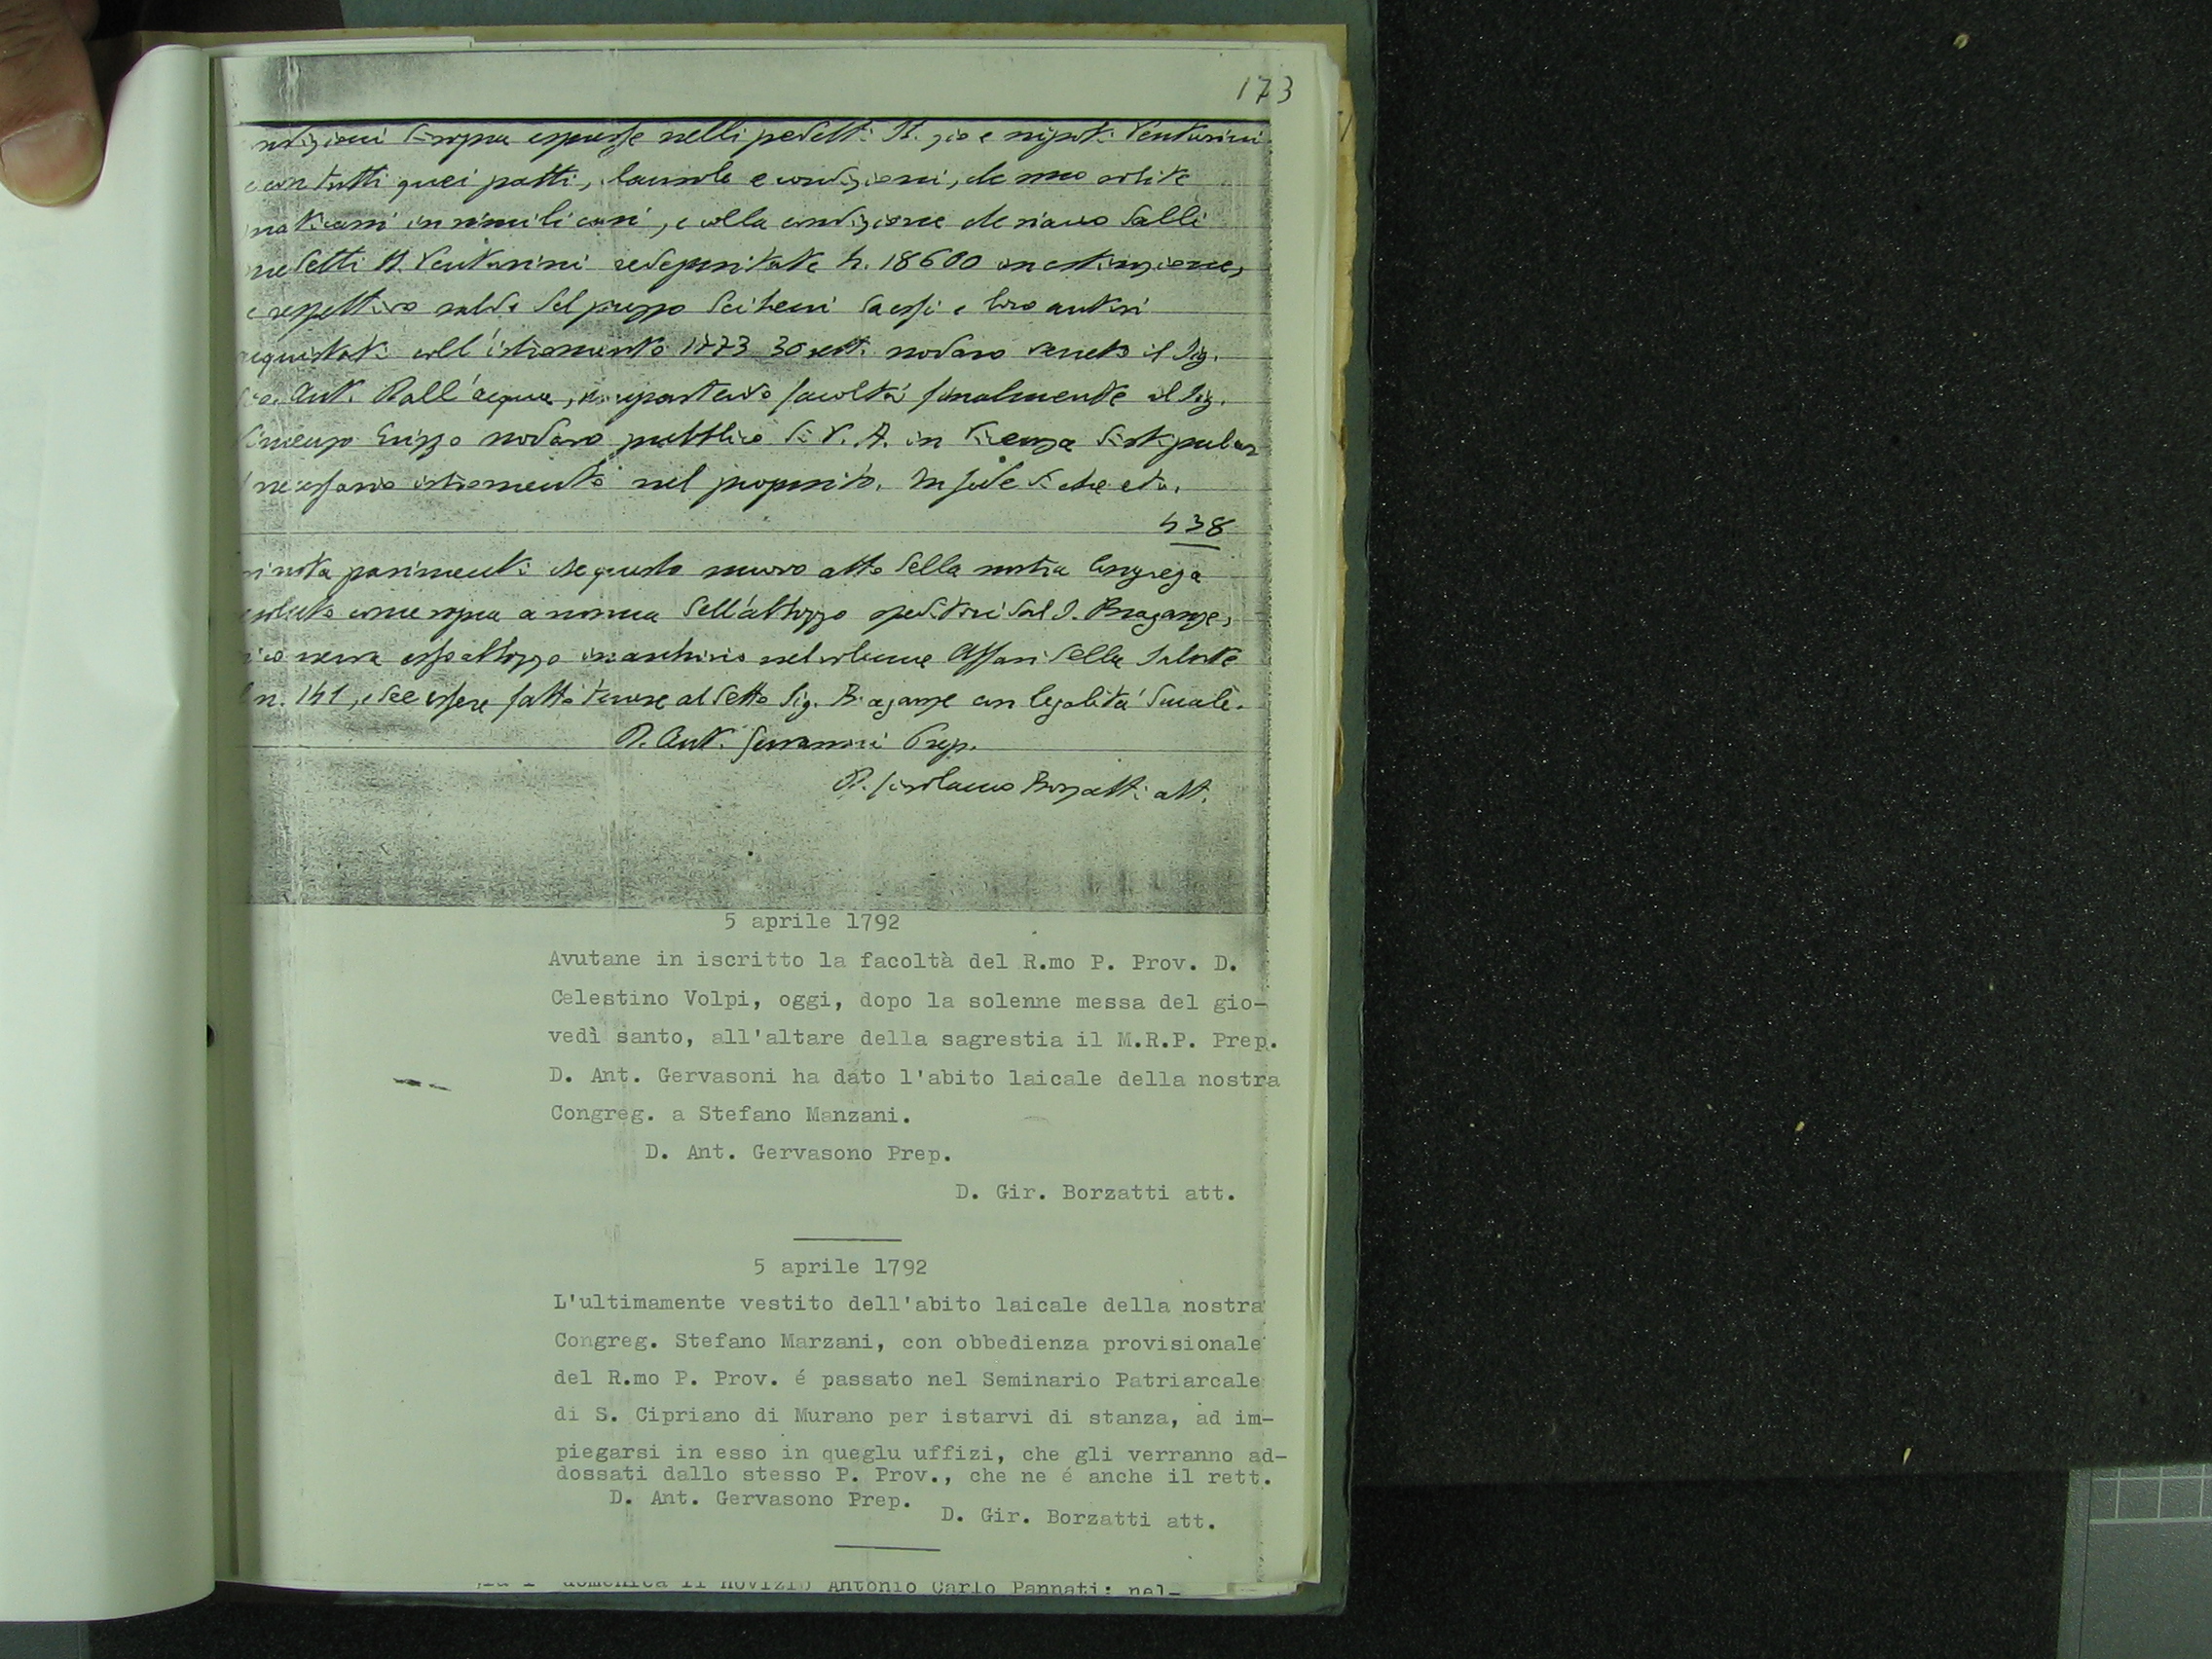 173
di sopra espresse nelli pedetti SS. zio e nipoti Venturini
e con tutti quei patti, e condizioni, che sono solite
praticarsi in simili casi, e colla condizione che siano dalli
predetti SS. Venturini redepositate L. 18600 in estinzione,
e respettivo saldo del prezzo dei beni da essi e loro autori
acquistati coll'istromento 1773 30 sett. nodaro veneto il Sig.
Ant. Dall'acqua, impartendo facoltà finalmente al Sig.
Vincenzo nodaro pubblico di V. A. in Vicenza di stipular
necessario istromento nel proposito. In fede di che etc.
438
parimenti che questo nuovo atto della nostra Congrega
come sopra a norma dell'abbozzo speditoci dal S. Braganze,
esso abbozzo in archivio nel volume Affari della Salute
n. 141, e dee essere fatto tenere al detto Sig. Braganze con legalità ducale.
D. Ant. Gervasoni Prep.
D. Girolamo Borzatti att.
5 aprile 1792
Avutane in iscritto la facoltà del R.mo P. Prov. D.
Celestino Volpi, oggi, dopo la solenne messa del gio-
vedì santo, all'altare della sagrestia il M.R.P. Prep.
D. Ant. Gervasoni ha dato l'abito laicale della nostra
Congreg. a Stefano Manzani.
D. Ant. Gervasono Prep.
D. Gir. Borzatti att.
5 aprile 1792
L'ultimamente vestito dell'abito laicale della nostra
Congreg. Stefano Marzani, con obbedienza provisionale
del R.mo P. Prov. é passato nel Seminario Patriarcale
di S. Cipriano di Murano per istarvi di stanza, ad im-
piegarsi in esso in queglu uffizi, che gli verranno ad-
dossati dallo stesso P. Prov., che ne é anche il rett.
D. Ant. Gervasono Prep.
D. Gir. Borzatti att.
domenica il novizio Antonio Carlo Pannati: nel-